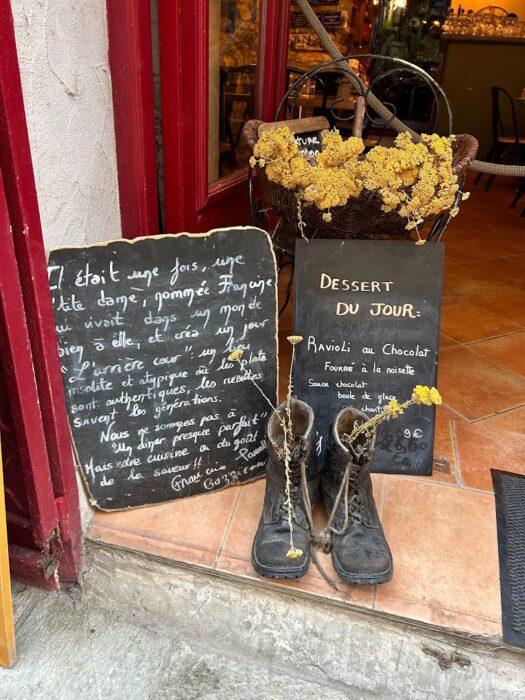 Il était une fois, une
p'tite dame, nommée Françine
qui vivait dans un monde
bien à elle, et créa un jour
"L'arrière cour" un lieu
insolite et atypique où les plats
sont authentiques, les recettes
suivent les générations.
Nous ne sommes pas à
"un diner presque parfait"
Mais notre cuisine a du goût
de la saveur!!
DESSERT
DU JOUR:
RAVIOLI AU CHOCOLAT
FOURRÉ À LA NOISETTE
SAUCE CHOCOLAT
BOULE DE GLACE
9€